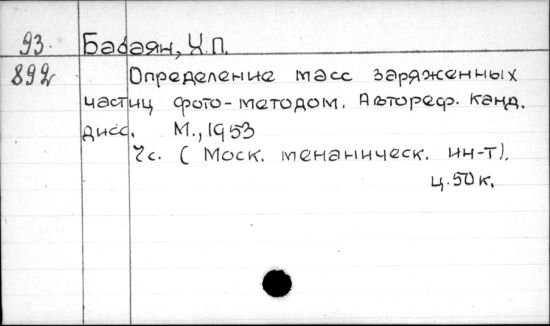 93. Бабаян, Х.П.
892 Определение масс заряженных
частиц фото-методом. Автореф. канд.
дисс. М., 1953
7с. (Моск. механическ. ин-т).
ц. 50 к.